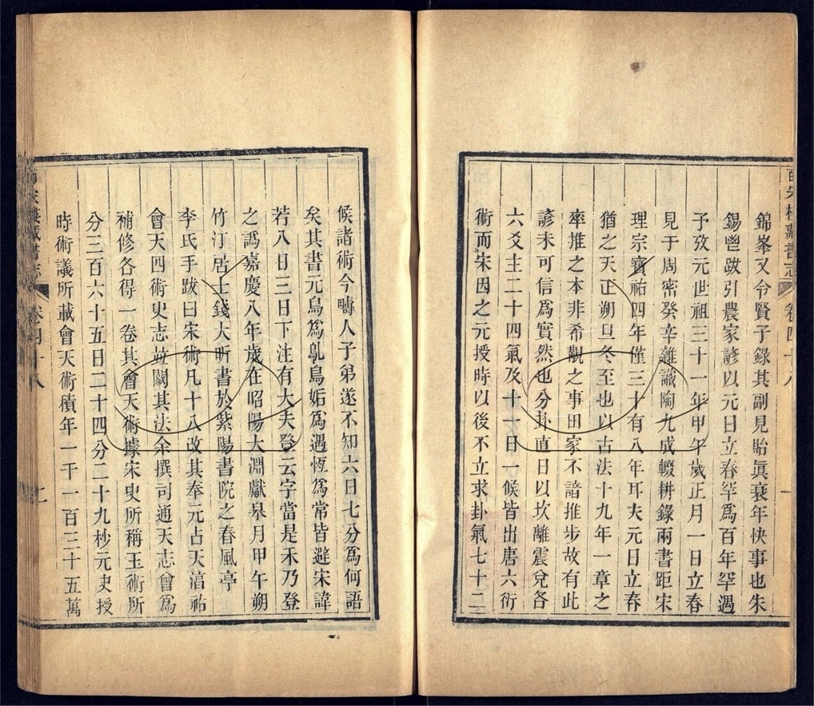 錦峯又令賢子錄其副見貽眞衰年快事也朱
錫鬯跋引農家諺以元日立春罕爲百年罕遇
予攷元世祖三十一年甲午歲正月一日立春
見于周密癸辛雜識陶九成輟耕錄兩書距宋
理宗寶祐四年僅三十有八年耳夫元日立春
猶之天正朔旦冬至也以古法十九年一章之
率推之本非希覯之事田家不諳推步故有此
諺未可信爲實然也分卦直日以坎離震兌各
六爻主二十四氣及十一日一候皆出唐六衍
術而宋因之元授時以後不立求卦氣七十二
候諸術今疇人子弟遂不知六日七分爲何語
矣其書元鳥爲鳦鳥姤爲遇恆爲常皆避宋諱
若八日三日下注有大夫登云字當是禾乃登
之譌嘉慶八年歲在昭陽大淵獻皋月甲午朔
竹汀居士錢大昕書於紫陽書院之春風亭
李氏手跋曰宋術凡十八改其奉元占天湻祐
會天四術史志竝闕其法余撰司通天志會爲
補修各得一卷其會天術據宋史所稱玉術所
分三百六十五日二十四分二十九秒元史授
時術議所載會天術積年一千一百三十五萬
卷四十八
一